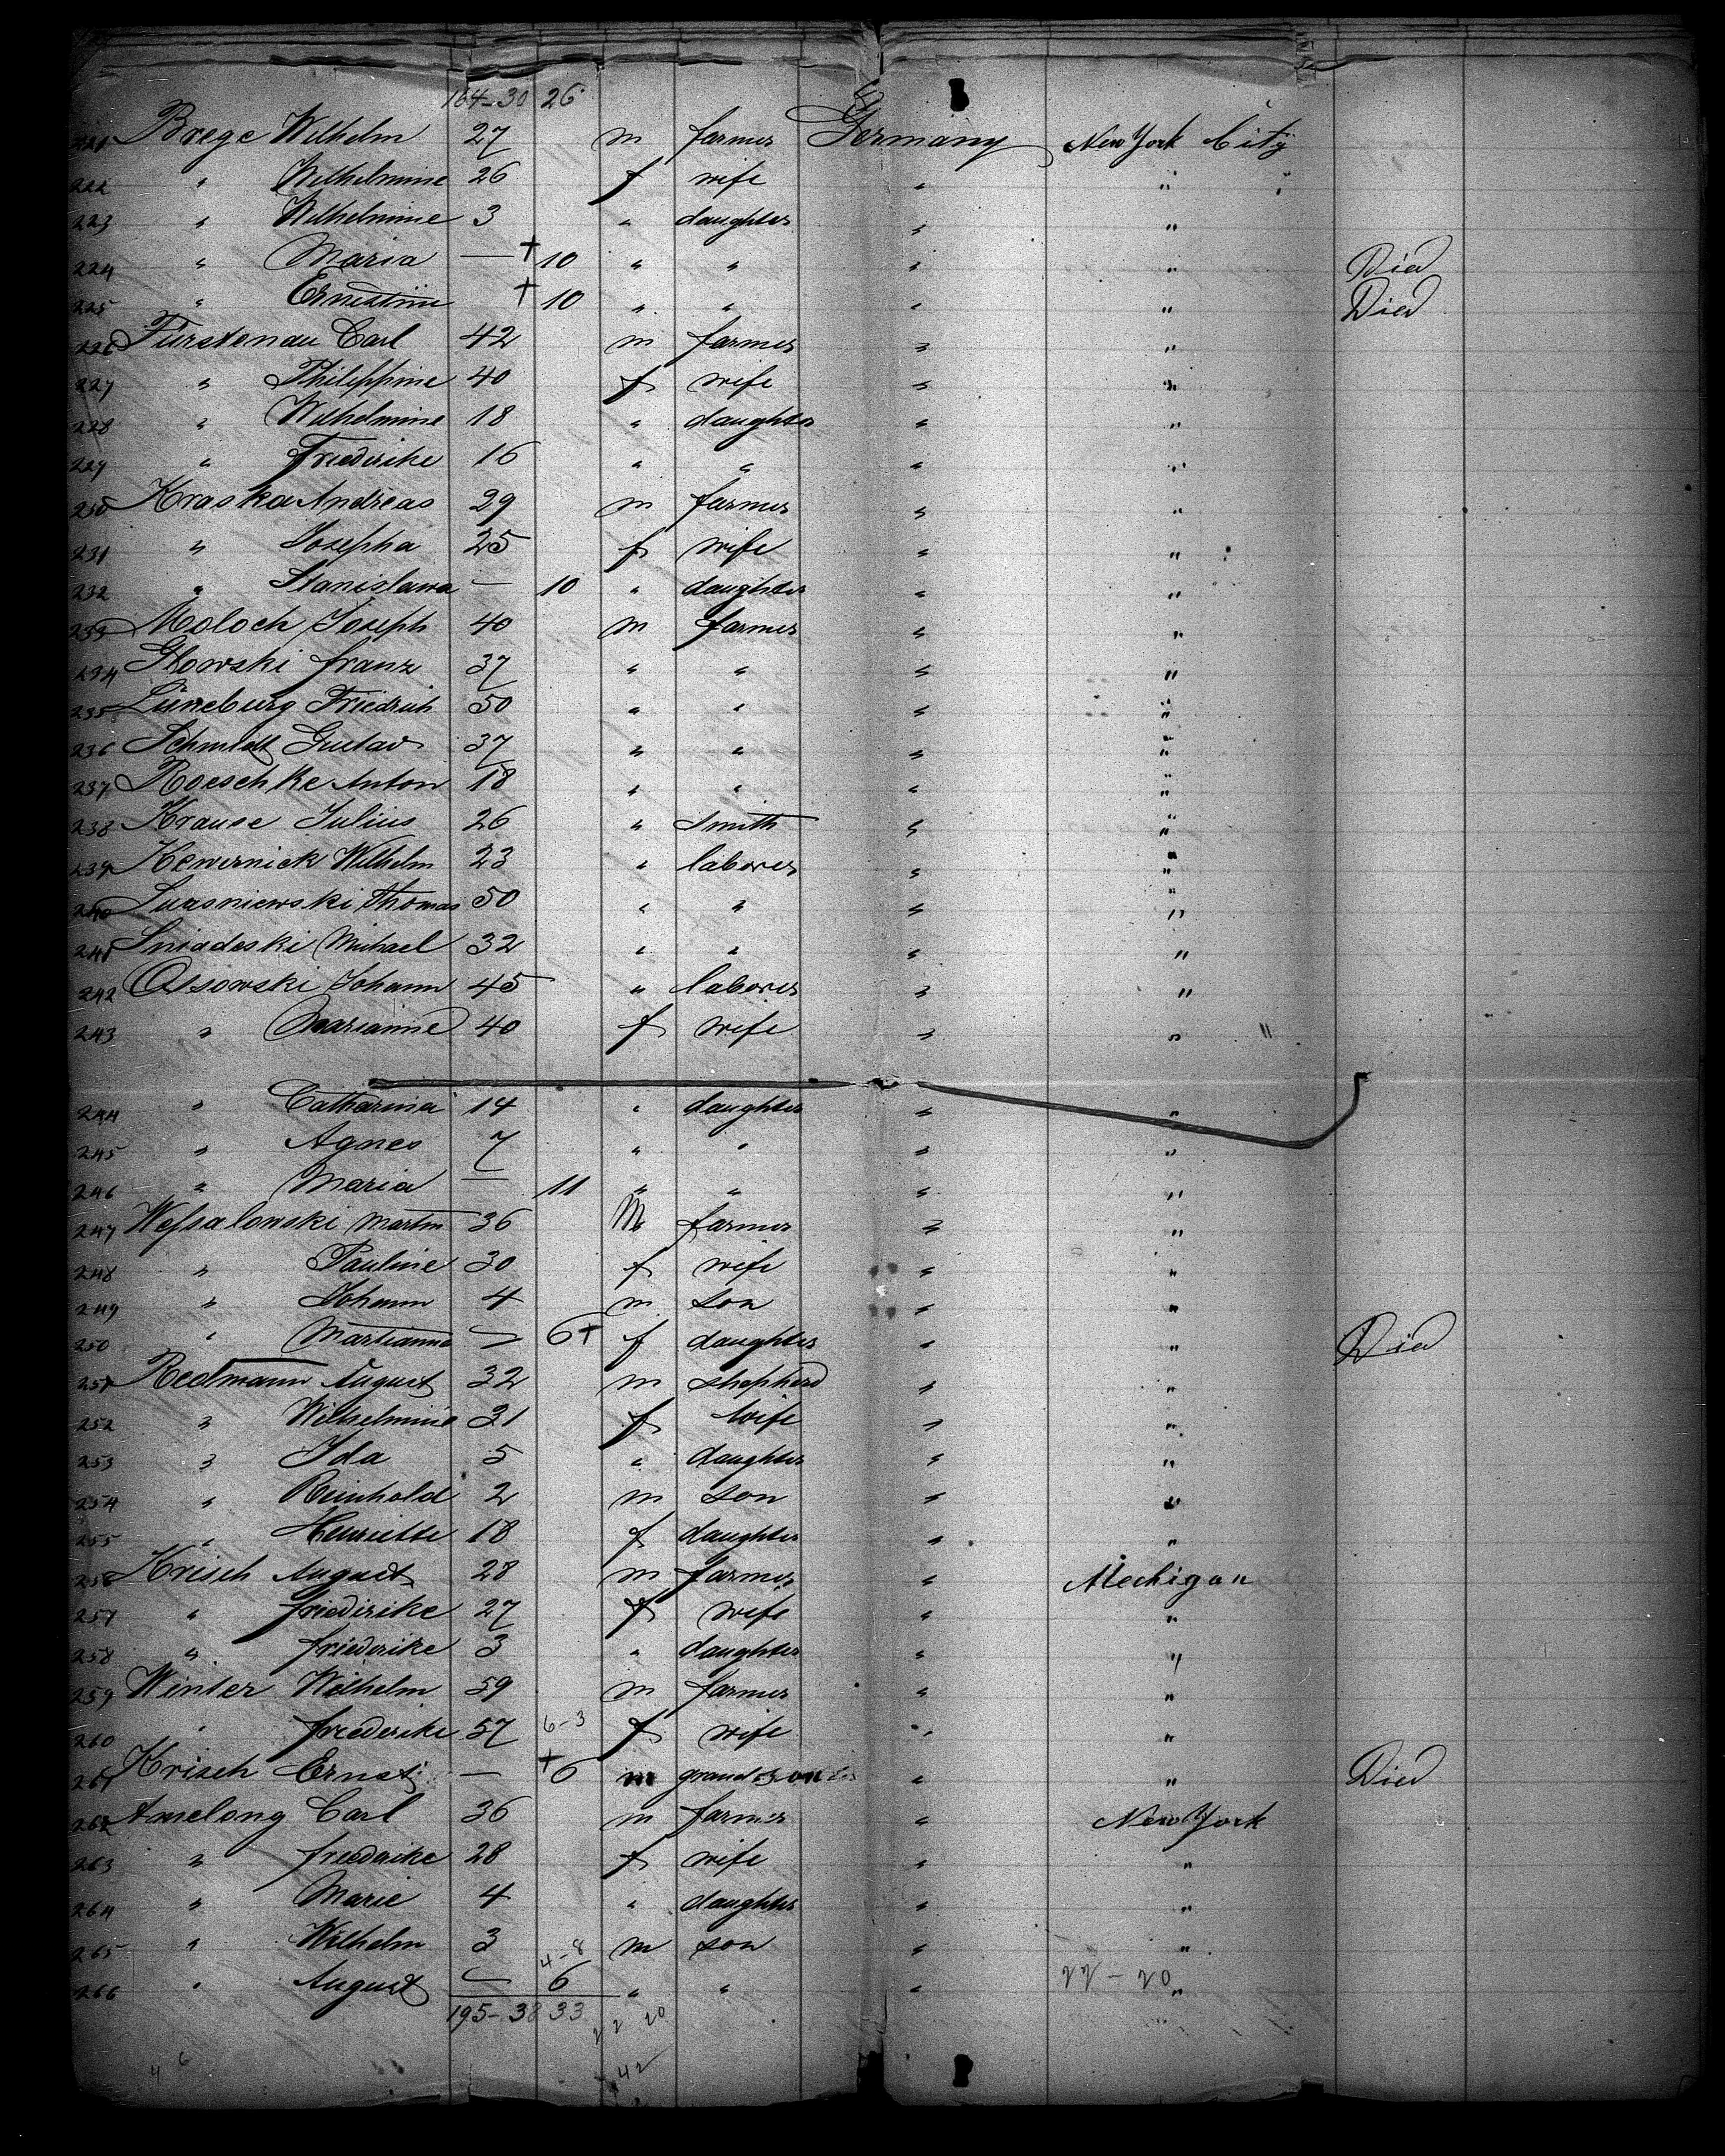 164-30 26
221 Brege Wilhelm 27 m farmer Germany New York City
222 " Wilhelmine 26 f wife " "
223 " Wilhelmine 3 " daughter " "
224 " Maria — + 10 " " " " Died
225 " Ernestine + 10 " " " " Died
226 Fürstenau Carl 42 m farmer " "
227 " Philippine 40 f wife " "
228 " Wilhelmine 18 " daughter " "
229 " Friederike 16 " " " "
230 Kraska Andreas 29 m farmer " "
231 " Josepha 25 f wife " "
232 " Stanislawa — 10 " daughter " "
233 Moloch Joseph 40 m farmer " "
234 Glowski Franz 37 " " " "
235 Lüneburg Friedrich 50 " " " "
236 Schmidt Gustav 37 " " " "
237 Roeschke Anton 18 " " " "
238 Krause Julius 26 " Smith " "
239 Kewernick Wilhelm 23 " laborer " "
240 Thomas 50 " " " "
241 Sniadeski Michael 32 " " " "
242 Ossowski Johann 45 " laborer " "
243 " Marianne 40 f wife " " "
244 " Catharina 14 " daughter " "
245 " Agnes 7 " " " "
246 " Maria — 11 " " " "
247 Weſsalowski Martin 36 M farmer " "
248 " Pauline 30 f wife " "
249 " Johann 4 m son " "
250 " Marianna — 6 + f daughter " " Died
251 Redmann August 32 m shepherd " "
252 " Wilhelmine 31 f wife " "
253 " Ida 5 " daughter " "
254 " Reinhold 2 m son " "
255 " Henriette 18 f daughter " "
256 Krisch August 28 m farmer " Mechigan
257 " Friederike 27 f wife " "
258 " Friederike 3 " daughter " "
259 Winter Wilhelm 59 m farmer " "
260 " Friederike 57 6-3 f wife " "
261 Krisch Ernst — + 6 m grandson " " Died
262 Amelong Carl 36 m farmer " New York
263 " Friederike 28 f wife " "
264 " Marie 4 " daughter " "
265 " Wilhelm 3 m son " "
4-8
266 " August — 6 " " " 22-20 "
195-38 33 22 20
4 6 42